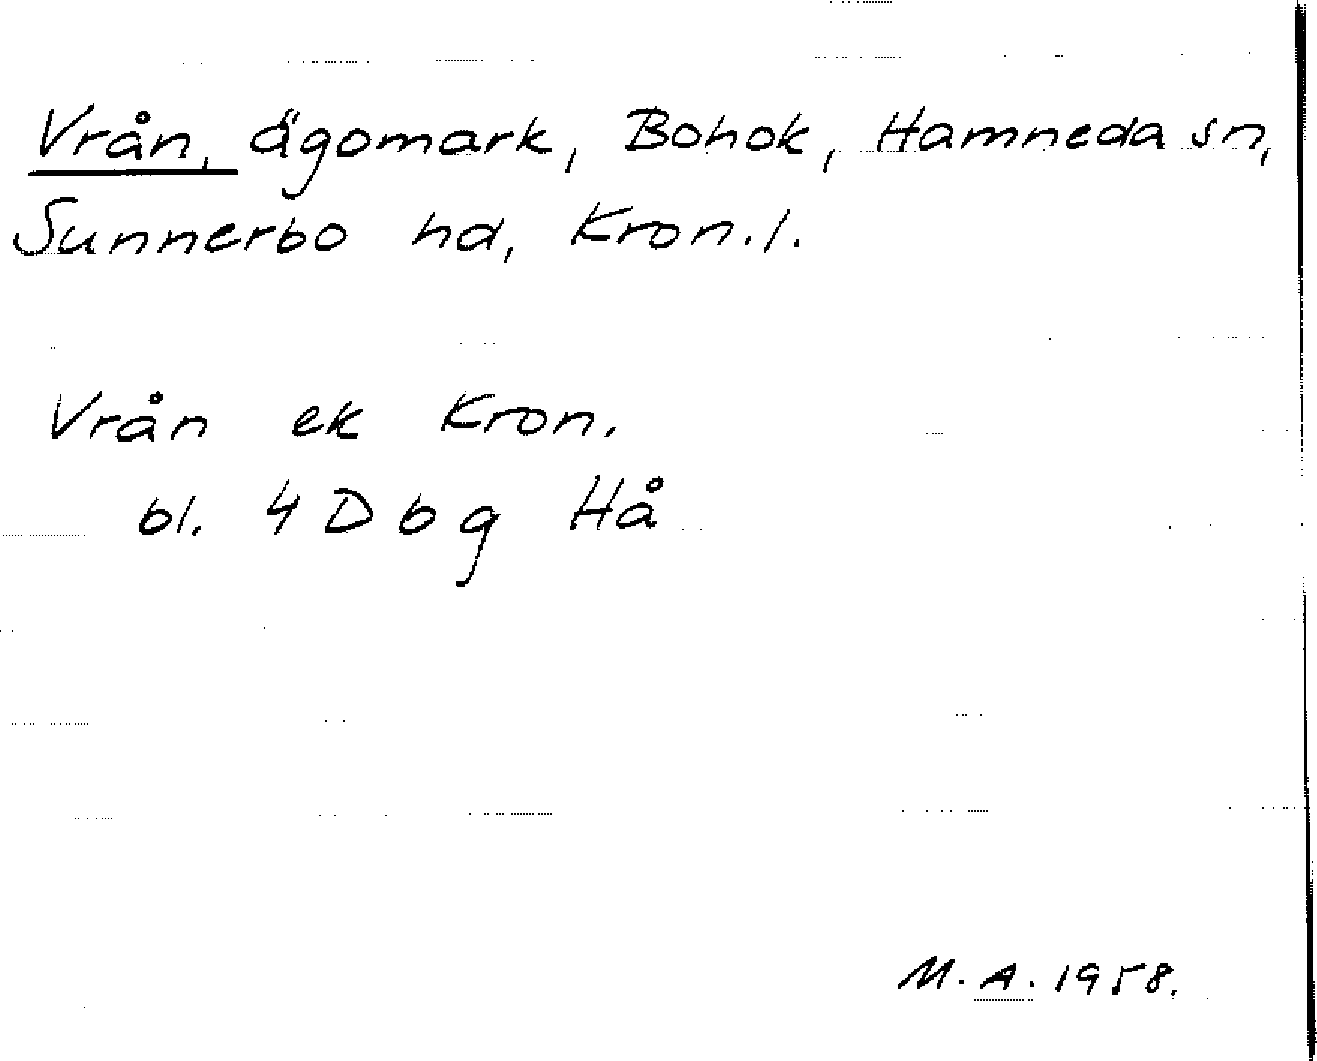 Vrån, ägomark, Bohok, Hamneda sn,
Sunnerbo hd, Kron.l.
Vrån ek Kron.
bl. 4 D b g Hå
M.A. 1958.